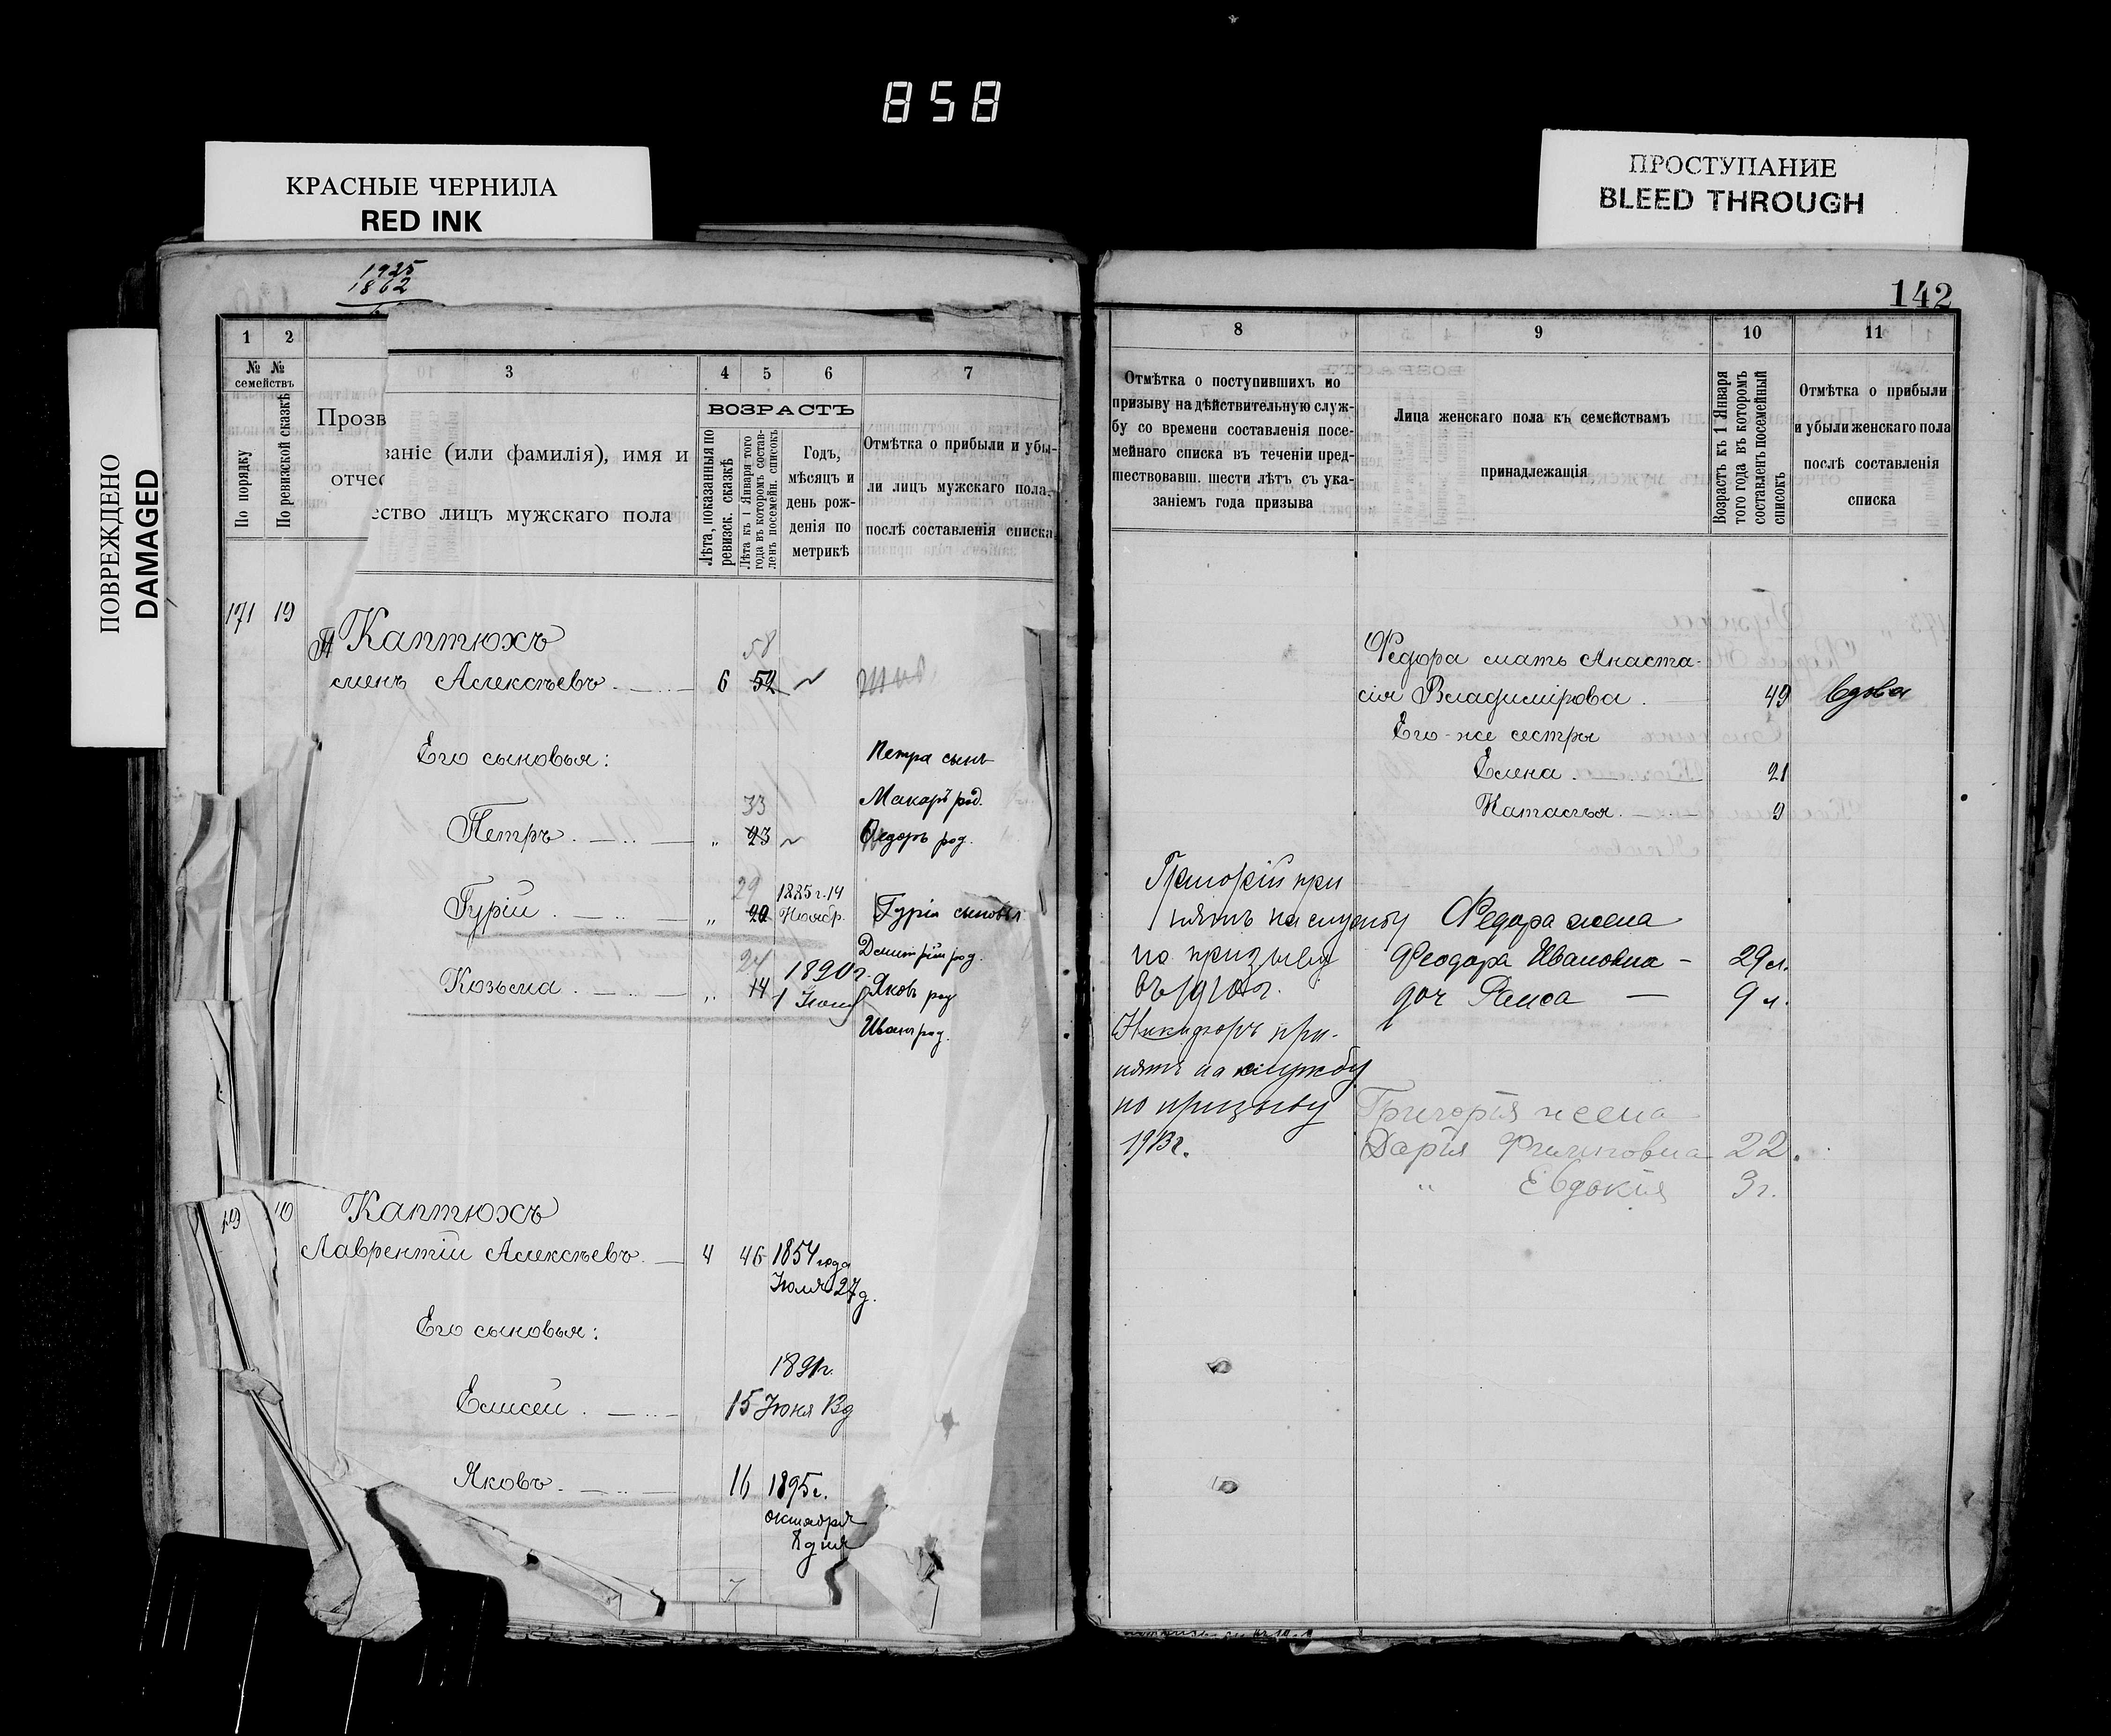 858
КРАСНЫЕ ЧЕРНИЛА
RED INK
ПРОСТУПАНИЕ
BLEED THROUGH
ПОВРЕЖДЕНО
DAMAGED
1925
1862
1 2
№ № семействъ
По порядку
По ревизской сказкѣ
Прозв
отчес
3 4 5 6 7
ваніе (или фамилія), имя и
ество лицъ мужскаго пола
ВОЗРАСТЪ
Лѣта, показанныя по
ревизск. сказкѣ
Лѣта къ 1 Января того
года въ которомъ состав-
ленъ посемейн. списокъ
Годъ,
мѣсяцъ и
день рож-
денія по
метрикѣ
Отмѣтка о прибыли и убы-
ли лицъ мужскаго пола,
послѣ составленія списка
171 19
Каптюхъ
58
менъ Алексѣевъ. 6 52
Его сыновья:
Петра сынъ
33 Макаръ род.
Петръ. " 23 Федоръ род.
29 1885 г. 14
Гурій. " 20 Ноябр. Гурія сыновья
Дмитрій род.
24 1890 г.
Козьма. " 14 1 Яковъ род
Иванъ род.
Каптюхъ
Лаврентій Алексѣевъ. 4 46 1854 года
Іюля 27 д.
Его сыновья:
1891 г.
Елисей. 15 Іюня 13 д
Яковъ. 16 1895 г.
октября
дня
7
142
8 9 10 11
Отмѣтка о поступившихъ по
призыву на дѣйствительную служ-
бу со времени составленія посе-
мейнаго списка въ теченіи пред-
шествовавш. шести лѣтъ съ ука-
заніемъ года призыва
Лица женскаго пола къ семействамъ
принадлежащія
Возрастъ къ 1 Января
того года въ которомъ
составленъ посемейный
списокъ
Отмѣтка о прибыли
и убыли женскаго пола
послѣ составленія
списка
Федора мать Анаста-
сія Владимірова. 49 вдова
Его-же сестры
Елена. 21
Наталья. 9
Григорій при
нятъ на службу
по призыву
въ 1910 г.
Никифоръ при-
нятъ на службу
по призыву
1913 г.
Федора жена
Феодора Ивановна - 29 л.
доч Раиса — 9 л.
Григорія жена
Дарія Филиповна 22.
" Евдокия 3 г.